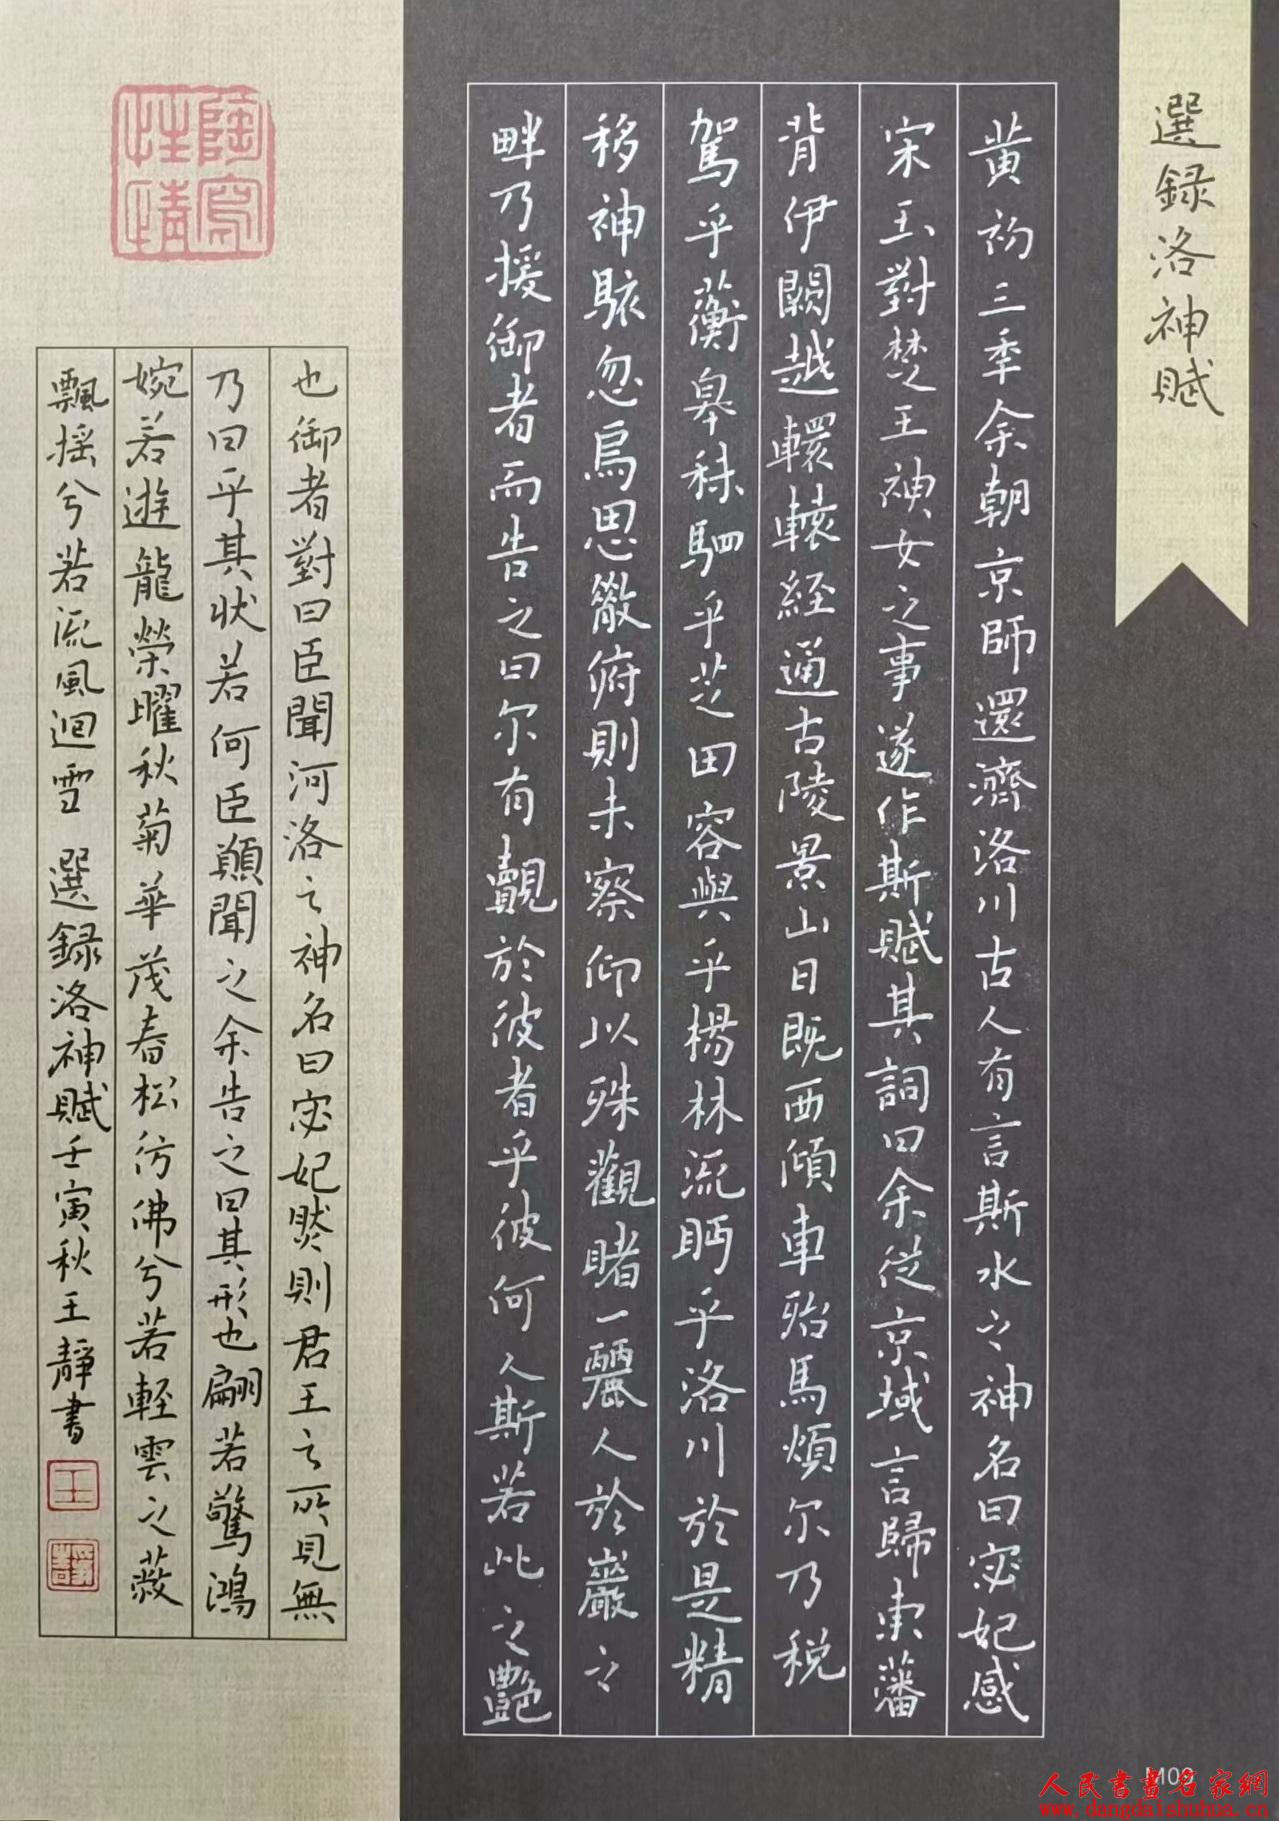 選錄洛神賦
黃初三秊余朝京師還濟洛川古人有言斯水之神名曰宓妃感
宋玉對楚王神女之事遂作斯賦其詞曰余從京域言歸東藩
背伊闕越轘轅經通古陵景山日既西傾車殆馬煩尔乃稅
駕乎蘅皋秣駟乎芝田容與乎楊林流眄乎洛川於是精
移神駭忽焉思散俯則未察仰以殊觀睹一麗人於巖之
畔乃援御者而告之曰尔有覿於彼者乎彼何人斯若此之艷
陶寫性情
也御者對曰臣聞河洛之神名曰宓妃然則君王之所見無
乃曰乎其狀若何臣願聞之余告之曰其形也翩若驚鴻
婉若遊龍榮曜秋菊華茂春松彷佛兮若輕雲之蔽
飄搖兮若流風迴雪 選錄洛神賦壬寅秋王靜書
王
靜書
M09
人民書畫名家網
www.dangdaishuhua.cn